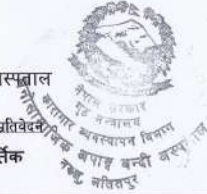 स्पताल
प्रतिवेदन
र्तिक
नेपाल सरकार
गृह मन्त्रालय
कारागार व्यवस्थापन विभाग
अपाङ्ग बन्दी अस्पताल
नख्खु, ललितपुर